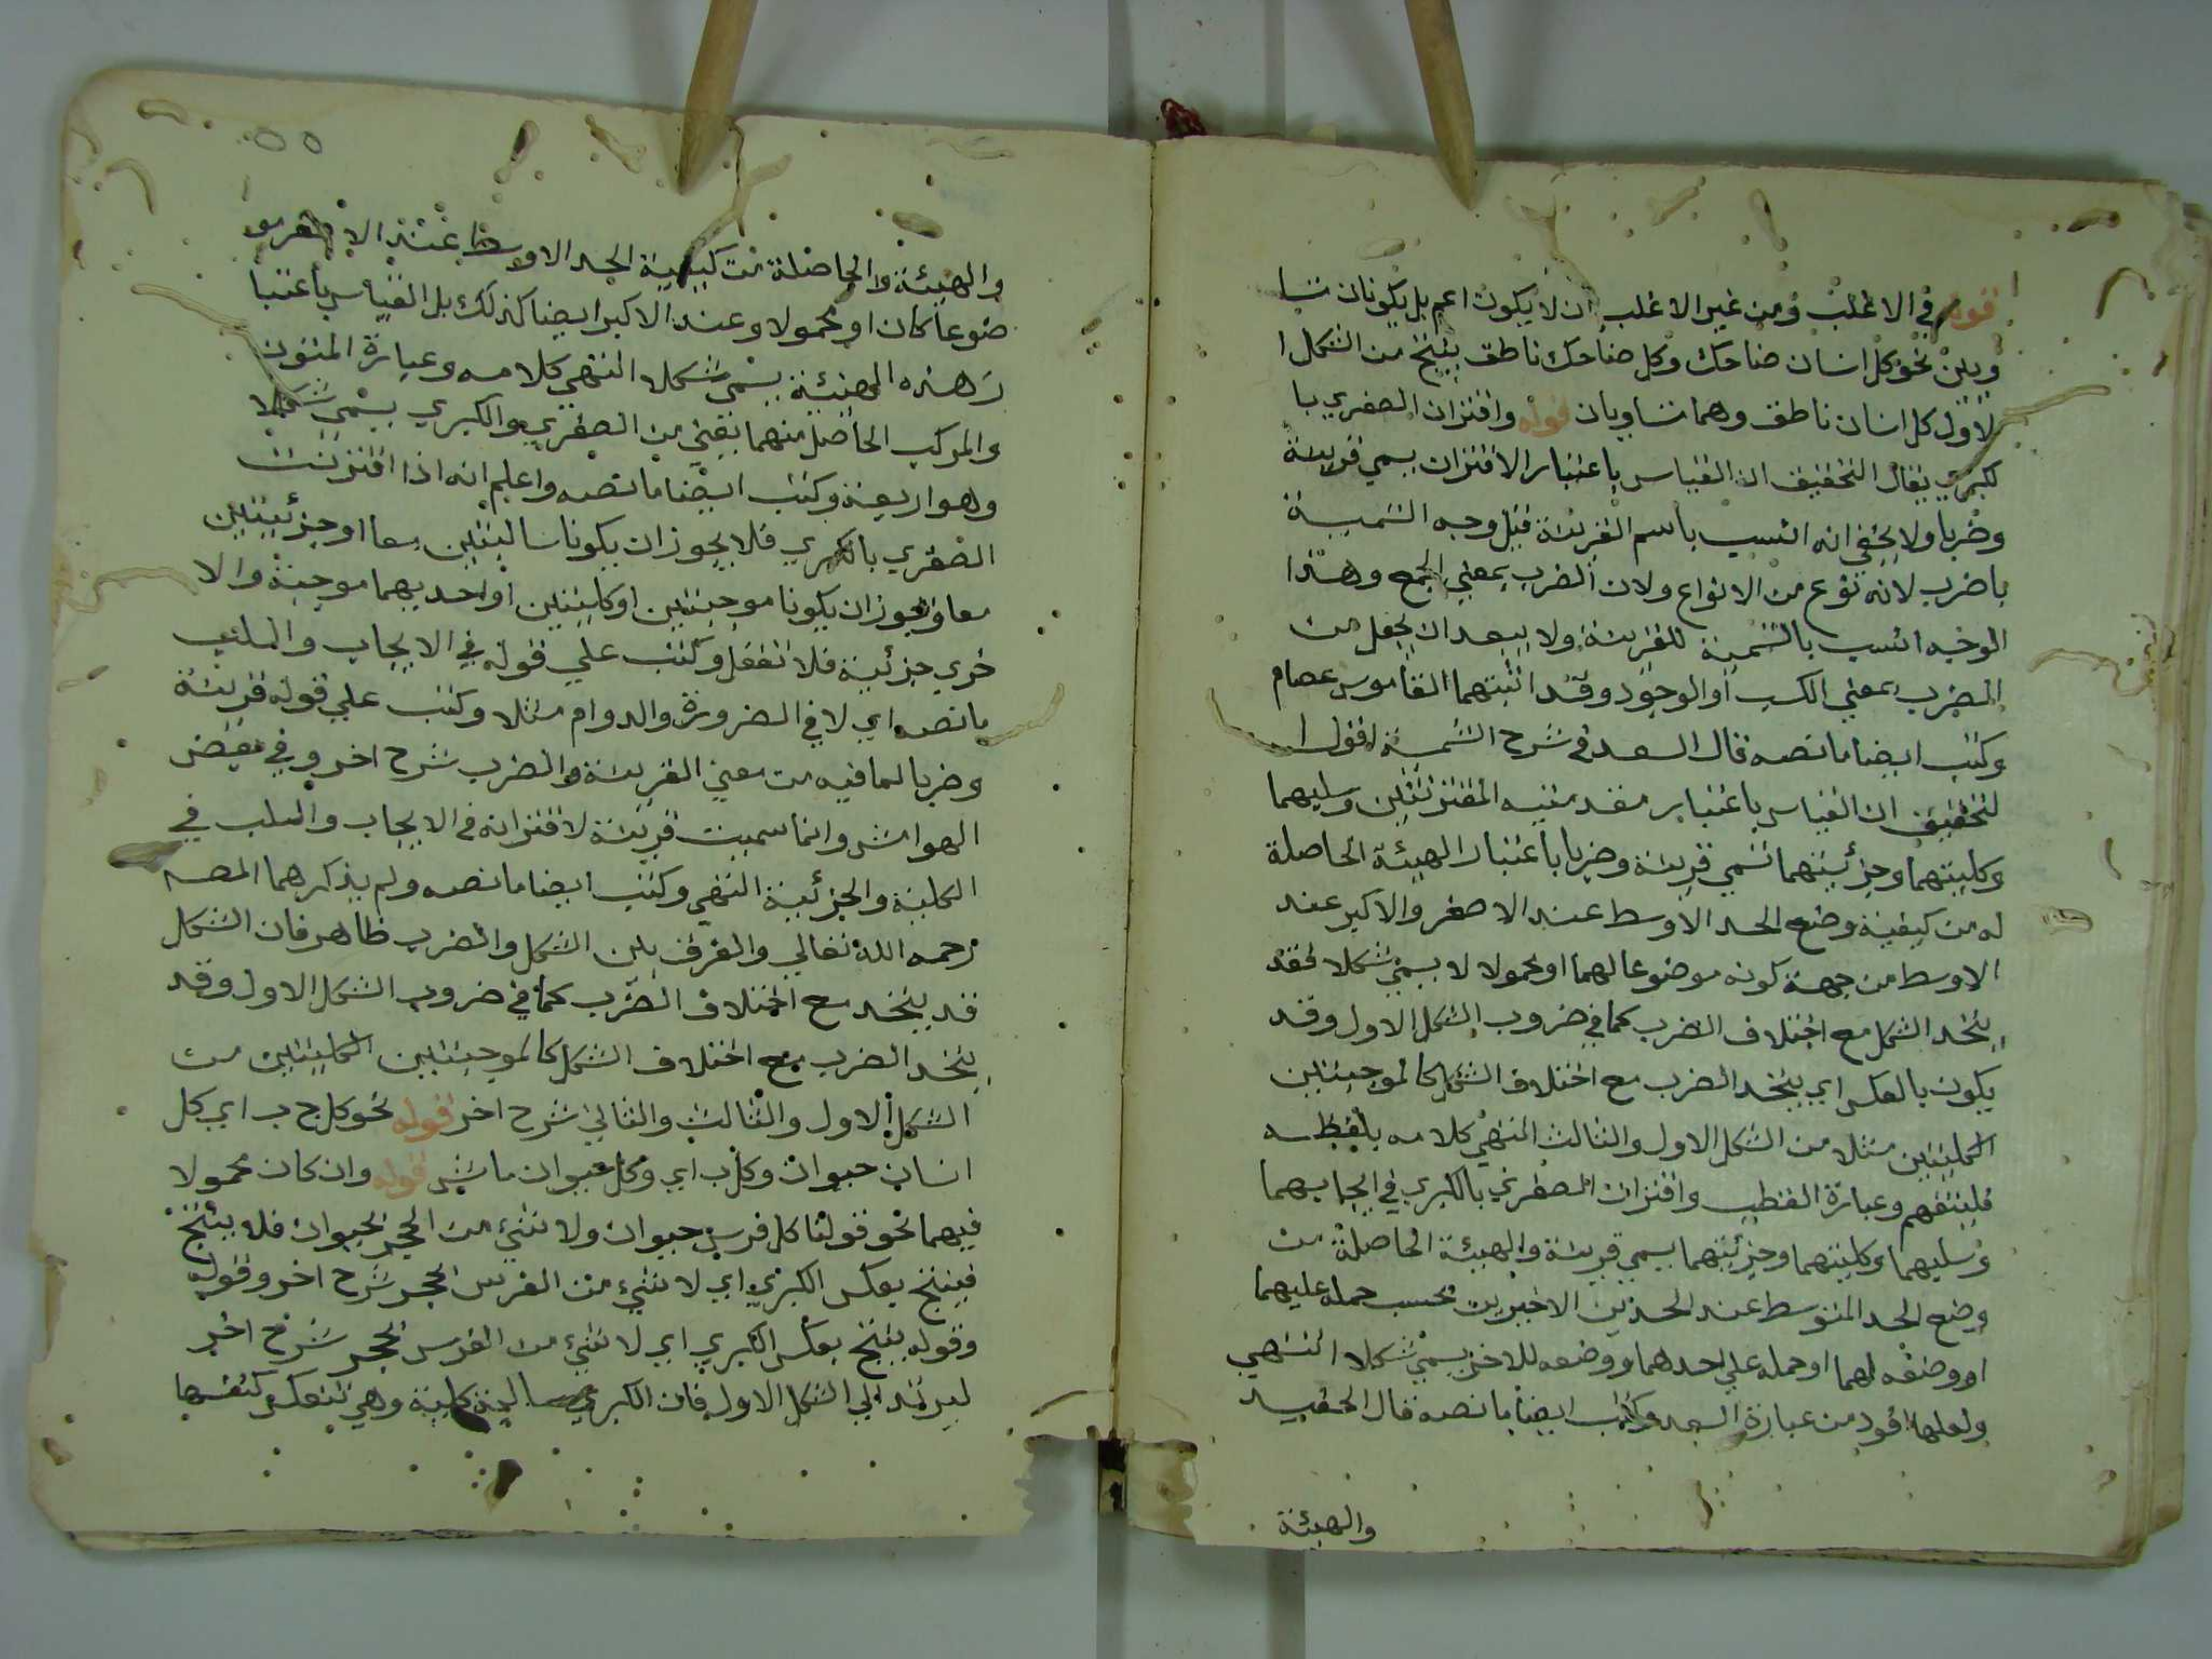 قوله في الاغلب ومن غير الاغلب ان لا يكون اعم بل يكونان متسا
ويين نحو كل انسان ضاحك وكل ضاحك ناطق ينتج من الشكل ا
لاول كل انسان ناطق وهما متساويان قوله واقتران الصغري با
لكبري يقال التحقيق ان القياس باعتبار الاقتران يسمي قرينة
وضربا ولا يخفي انه انسب باسم القرينة قيل وجه التسمية
باضرب لانه نوع من الانواع ولان الضرب بمعني الجمع وهذا
الوجه انسب بالتسمية للقرينة ولا يبعد ان يجعل من
الضرب بمعني الكسب او الوجود وقد اثبتهما القاموس عصام
وكتب ايضا ما نصه قال السعد في شرح الشمسية اقول ا
لتحقيق ان القياس باعتبار مقدمتيه المقترنتين وسلبهما
وكليتهما وجزئيتهما تسمي قرينة وضربا باعتبار الهيئة الحاصلة
له من كيفية وضع الحد الاوسط عند الاصغر والاكبر عند
الاوسط من جهة كونه موضوعا لهما او محمولا لا يسمي شكلا فقد
يتحد الشكل مع اختلاف الضرب كما في ضروب الشكل الاول وقد
يكون بالعكس اي يتحد الضرب مع اختلاف الشكل كالموجبتين
الكليتين مثلا من الشكل الاول والثالث انتهي كلامه بلفظه
فليتفهم وعبارة القطب واقتران الصغري بالكبري في ايجابهما
وسلبهما وكليتهما وجزئيتهما يسمي قرينة والهيئة الحاصلة من
وضع الحد المتوسط عند الحدين الاخيرين بحسب حمله عليهما
او وضعه لهما او حمله علي احدهما ووضعه للاخر يسمي شكلا انتهي
ولعلها اقود من عبارة السعد وكتب ايضا ما نصه قال الحفيد
والهيئة
٥٥
والهيئة الحاصلة من كيفية الحد الاوسط عند الاصغر مو
ضوعا كان او محمولا وعند الاكبر ايضا كذلك بل القياس باعتبا
ر هذه الهيئة يسمي شكلا انتهي كلامه وعبارة المتون
والمركب الحاصل منهما يعني من الصغري والكبري يسمي شكلا
وهو اربعة وكتب ايضا ما نصه واعلم انه اذا اقترنت
الصغري بالكبري فلا يجوز ان يكونا سالبتين معا او جزئيتين
معا ويجوز ان يكونا موجبتين او كليتين او احديهما موجبة والا
خري جزئية فلا تغفل وكتب علي قوله في الايجاب والسلب
ما نصه اي لا في الضرورة والدوام مثلا وكتب علي قوله قرينة
وضربا لما فيه من معني القرينة والضرب شرح اخر وفي بعض
الهوامش وانما سميت قرينة لاقترانه في الايجاب والسلب في
الكلية والجزئية انتهي وكتب ايضا ما نصه ولم يذكرهما المصـ
رحمه الله تعالي والفرق بين الشكل والضرب ظاهر فان الشكل
قد يتحد مع اختلاف الضرب كما في ضروب الشكل الاول وقد
يتحد الضرب مع اختلاف الشكل كالموجبتين الكليتين من
الشكل الاول والثالث والثاني شرح اخر قوله نحو كل ج ب اي كل
انسان حيوان وكل ب اي وكل حيوان ماش قوله وان كان محمولا
فيهما نحو قولنا كل فرس حيوان ولا شئ من الحجر بحيوان فلا ينتج
فينتج بعكس الكبري اي لا شئ من الفرس بحجر شرح اخر وقوله
وقوله ينتج بعكس الكبري اي لا شئ من الفرس بحجر شرح اخر
ليرتد الي الشكل الاول فان الكبري سالبة كلية وهي تنعكس كنفسها